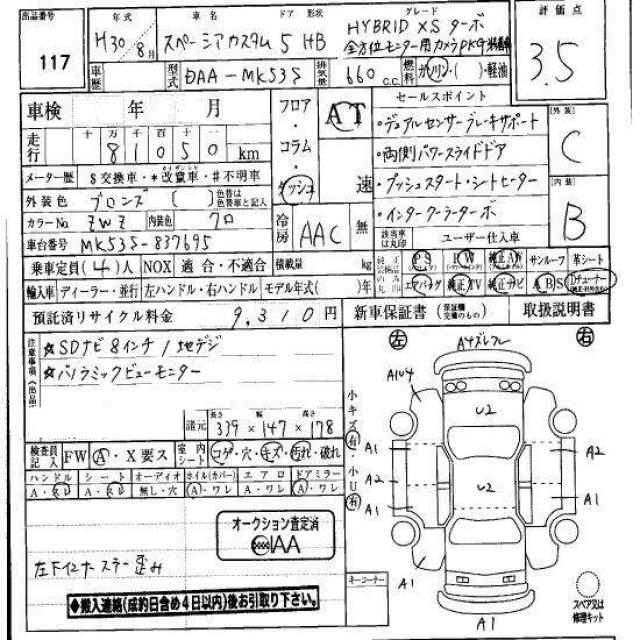 出品番号
117
年式
H30年8月
車名
スペーシアカスタム
ドア 形状
5 HB
グレード
HYBRID XS ターボ
全方位モニター用カメラPKG装着車
評価点
3.5
車歴
型式
DAA-MK53S
排気量
660 c.c.
燃料
ガソリン・( )・軽油
車検 年 月
走行
十 万 千 百 十 一
81050 km
メーター歴 $交換車・*改竄車・#不明車
外装色 ブロンズ ( ) 色替は色替車と記入
カラーNo. ZWZ 内装色 クロ
車台番号 MK53S-837695
フロア・コラム・ダッシュ
AT
速
冷房
AAC
無
セールスポイント
・デュアルセンサーブレーキサポート
・両側パワースライドドア
・プッシュスタート・シートヒーター
・インタークーラーターボ
該当車は丸印
ユーザー仕入車
[外装]
C
[内装]
B
乗車定員(4)人 NOX 適合・不適合 積載量 kg
輸入車 ディーラー・並行 左ハンドル・右ハンドル モデル年式( )年
PS PW 純正AW サンルーフ 革シート
エアバッグ 純正TV 純正ナビ ABS Dチューナー
預託済リサイクル料金 9,310円
新車保証書 (保証欄完備のもの) 取扱説明書
注意事項(出品店)
☆SDナビ8インチ/地デジ
☆パノラミックビューモニター
諸元
長さ 幅 高さ
339×147×178
検査員記入 FW A・X要ス 室内シート コゲ・穴・キズ・汚れ・破れ
ハンドル シート オーディオ ホイル(カバー) エアロ ドアミラー
A・スレ A・スレ 無し・穴 A・ワレ A・ワレ A・ワレ
オークション査定済
IAA
左下インナースラー歪み
◆搬入連絡(成約日含め4日以内)後お引取り下さい。
小キズ有・小U有
キーコーナー
左
右
A4ズレフレ
A1U4
U2
A1
A2
A2
U2
A1
A1
A1
A1
スペア又は修理キット